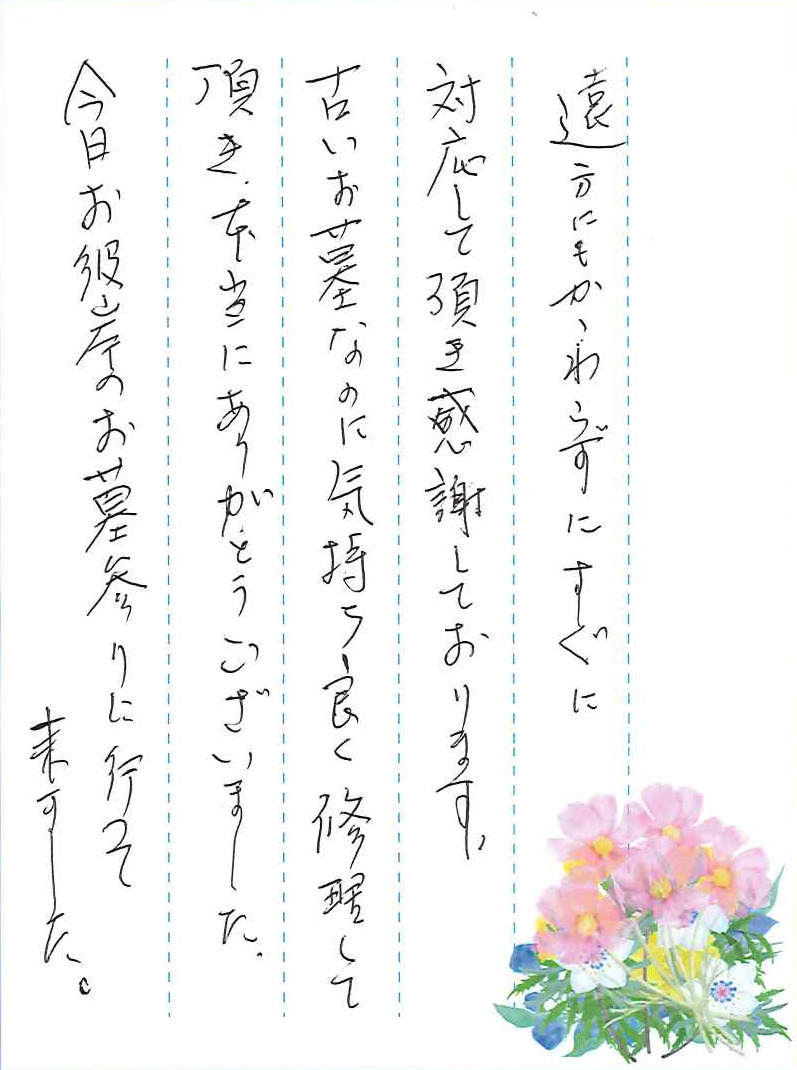 遠方にもかゝわらずにすぐに
対応して頂き感謝しております、
古いお墓なのに気持ち良く修理して
頂き、本当にありがとうございました。
今日お彼岸のお墓参りに行って
来ました。